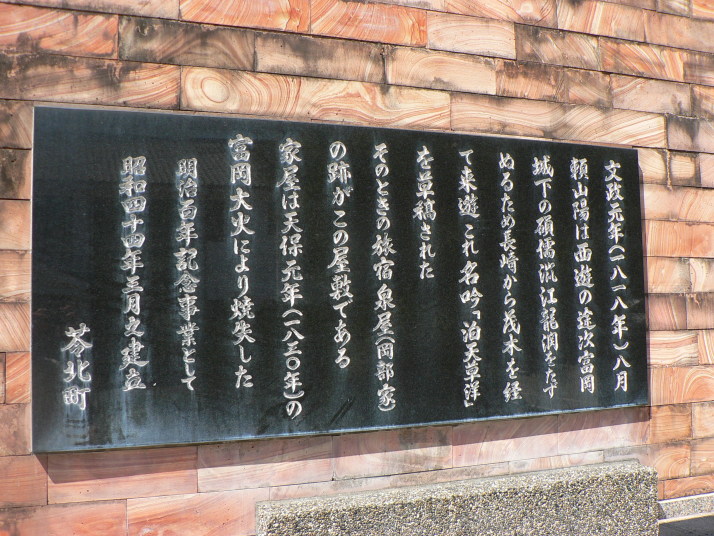 文政元年(一八一八年)八月
頼山陽は西遊の途次富岡
城下の碩儒渋江龍淵をたず
ぬるため長崎から茂木を経
て来遊 これ名吟「泊天草洋」
を草稿された
そのときの旅宿泉屋(岡部家)
の跡がこの屋敷である
家屋は天保元年(一八三〇年)の
富岡大火により焼失した
明治百年記念事業として
昭和四十四年三月之建立
苓北町